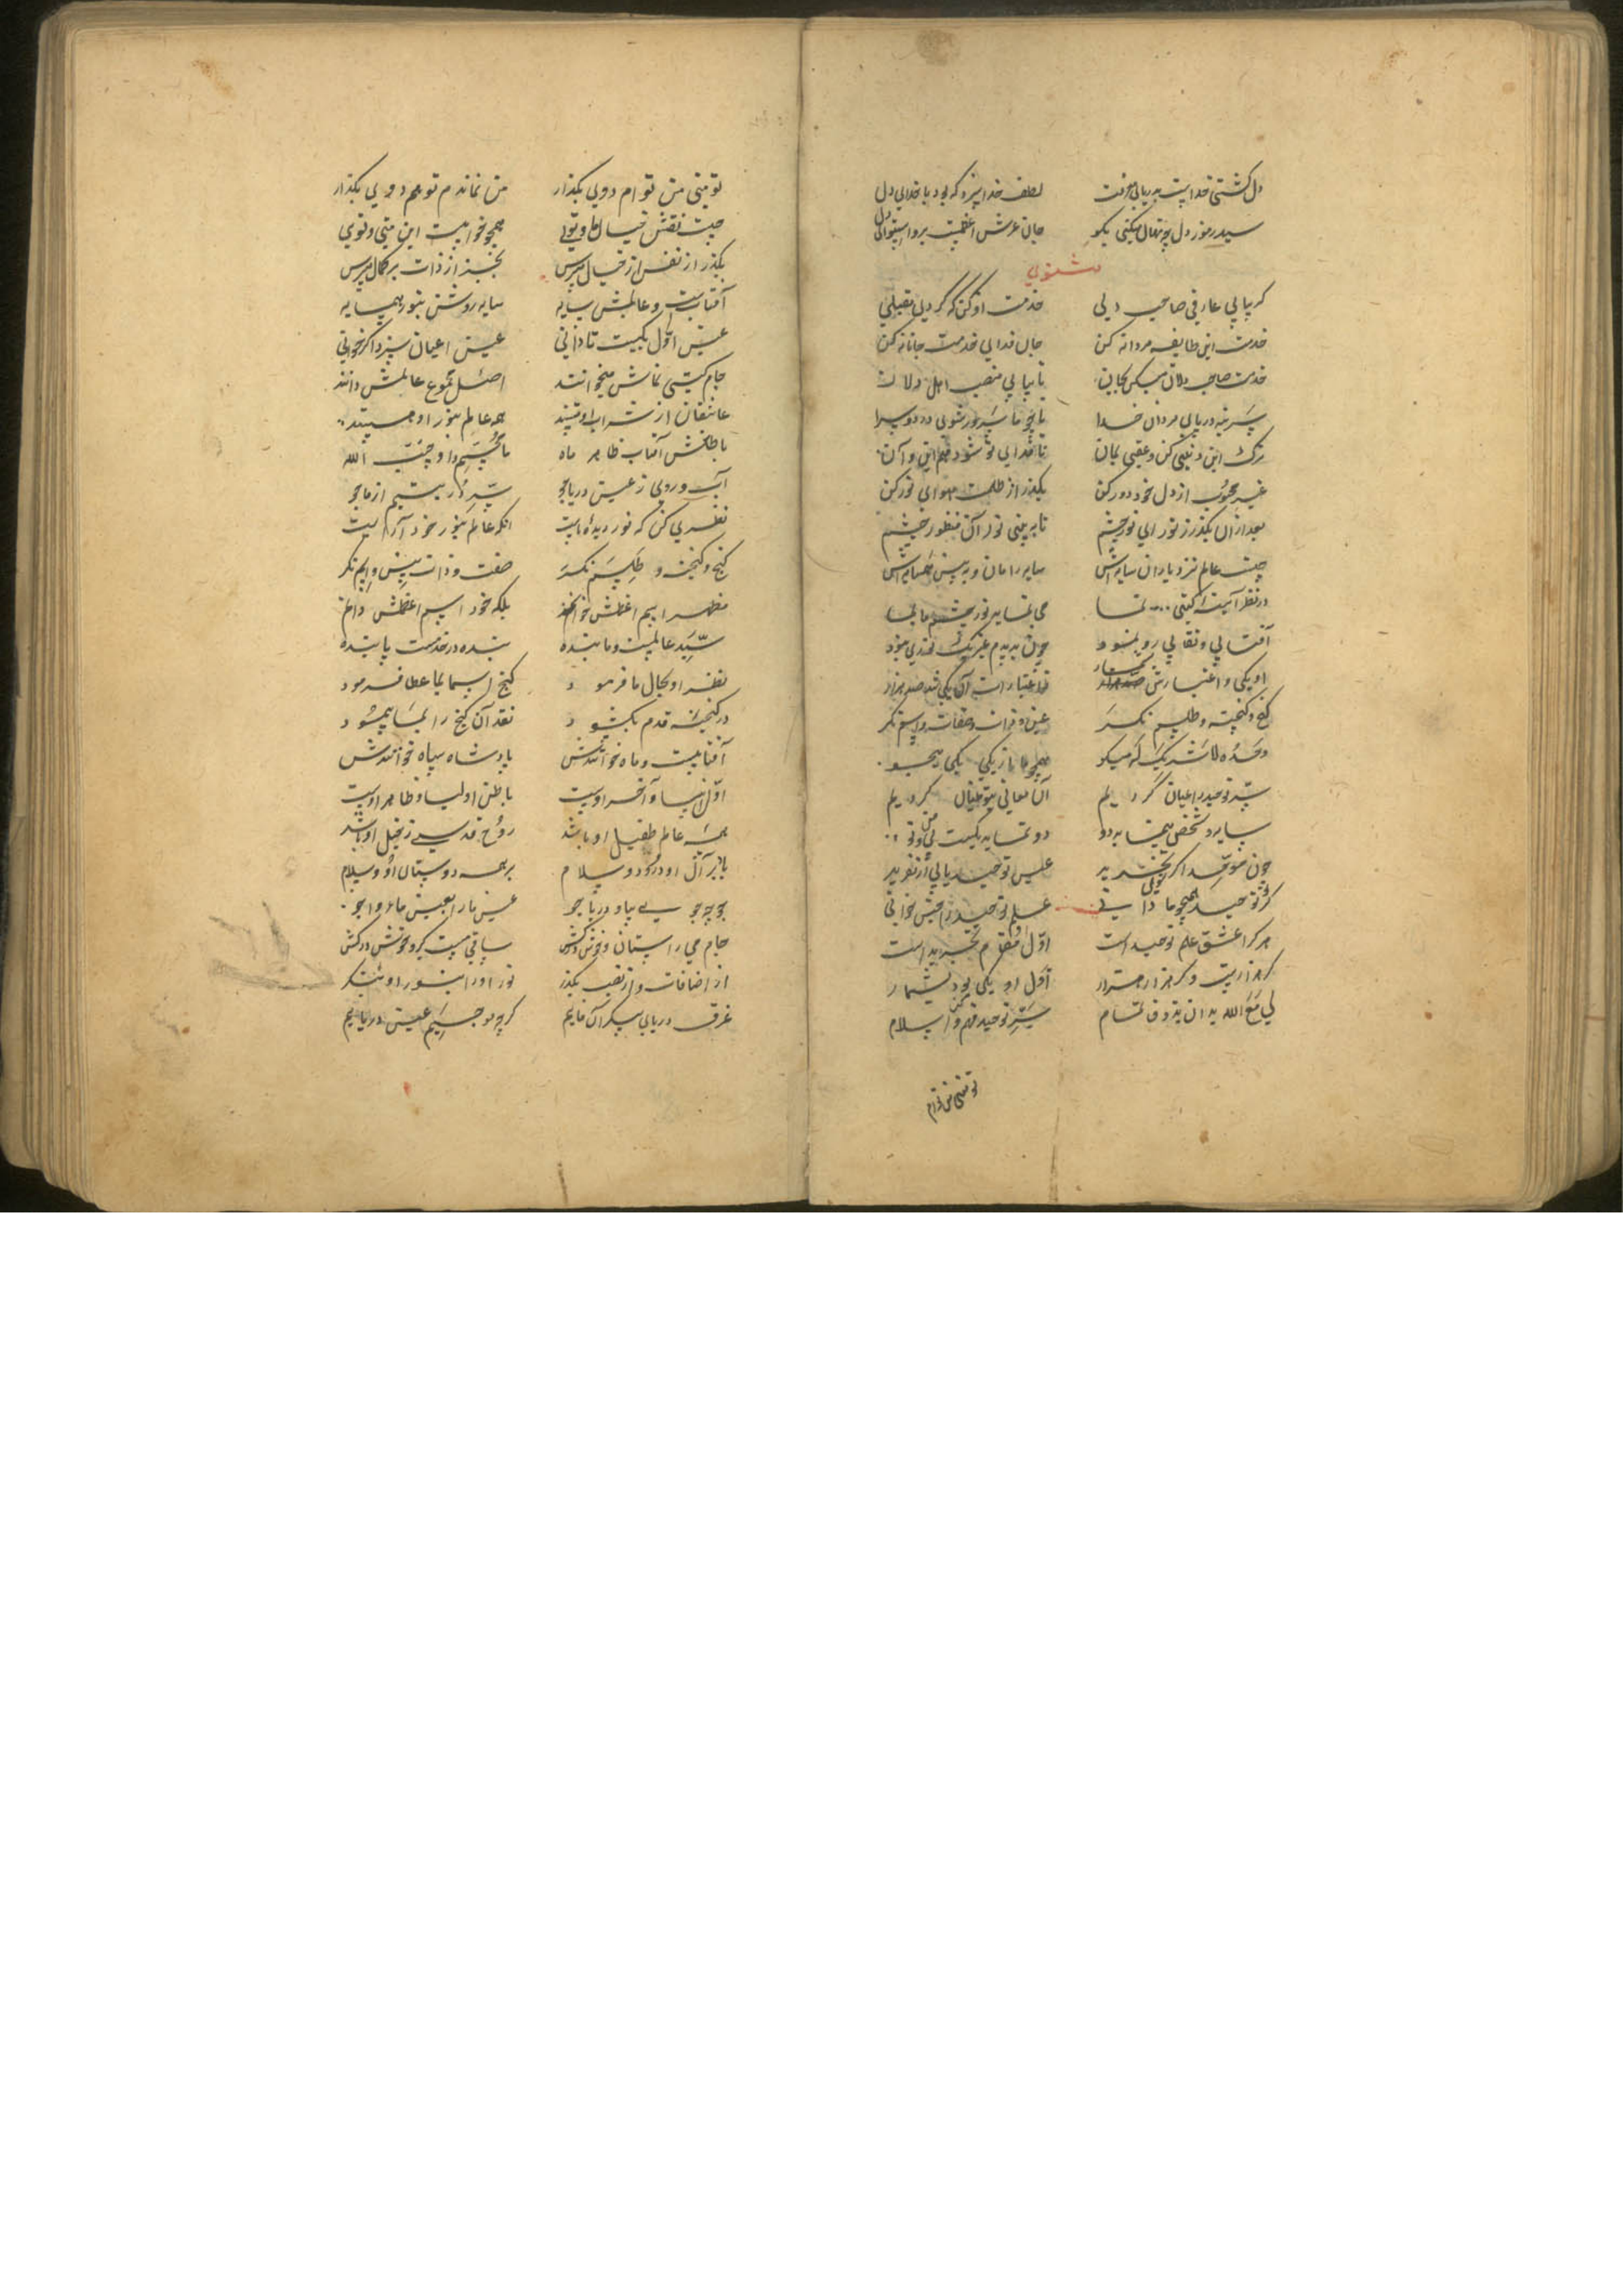 دل کشتی خداست بدریای معرفت لطف خدا ببین که بود با خدای دل
سید رموز دل چو نهان میکنی بگو جان عرش اعظمست برو استوای دل
مثنوی
گر بیابی عارفی صاحب دلی خدمت او کن که گردی مقبلی
خدمت این طایفه مردانه کن جان فدای خدمت جانانه کن
خدمت صاحب دلان میکن بجان تا بیابی منصب اهل دلان
سر بنه در پای مردان خدا تا چو ما سرور شوی در دو سرا
ترک این دنیی کن و عقبی بمان تا فدای تو شود هم این و آن
غیر محبوب از دل خود دور کن بگذر از ظلمت هوای نور کن
بعد از آن بگذر ز نور ای نور چشم تا ببینی نور آن منظور چشم
چیست عالم نزد یاران سایه‌اش سایه را مان و ببین همسایه‌اش
در نظر آیینه گیتی نما می نماید نور چشم ما بما
آفتابی و نقابی رو نمود چون بدیدم غیر یک نوری نبود
او یکی و اعتبارش صد هزار در اعتبارات آن یکی شد صد هزار
گنج و گنجینه و طلسم نگر عین و ذات و صفات و اسم نگر
وحده لاشریک له میگو همچو ما از یکی یکی میجو
سر توحید را عیان کردیم آن معانی بتو بیان کردیم
سایه و شخص می نماید دو دو نماید یکیست بی من و تو
چون موحد اگر بتجرید علم توحید یابی از تفرید
گر تو توحید همچو ما دانی علم توحید را چنین خوانی
هر که را عشق علم توحید است اول او مقام تجرید است
گر هزار است و گر هزار هزار اول او یکی بود بشمار
لی مع الله بدان بذوق تمام سر توحید فهم کن و اسلام
تو منی من توام
تو منی من توام دویی بگذار من نماندم تو هم دویی بگذار
چیست نقش خیال ما و تویی همچو خوابیست این منی و تویی
بگذر از نفس از خیال مپرس بجز از ذات بر کمال مپرس
آفتابست و عالمش سایه سایه روشن بنور همسایه
عین اول یکیست تا دانی عین اعیان سزد اگر خوانی
جام گیتی نماش میخوانند اصل مجموع عالمش دانند
عاشقان از شراب او مستند همه عالم بنور او هستند
باطنش آفتاب ظاهر ماه ما محبیم و او حبیب الله
آب روی ز عین دریا جو سر در یتیم از ما جو
نظری کن که نور دیده ماست آنکه عالم بنور خود آراست
گنج و گنجینه و طلسم نگر صفت و ذات بین و اسم نگر
مظهر اسم اعظمش خوانم بلکه خود اسم اعظمش دانم
سید عالمست و ما بنده بنده در خدمتست پاینده
نظر او بحال ما فرمود گنج اسما بما عطا فرمود
در گنجینه قدم بگشود نقد آن گنج را بما بنمود
آفتابیست و ماه خوانندش پادشاه سپاه خوانندش
اول انبیا و آخر اوست باطن اولیا و ظاهر اوست
همه عالم طفیل او باشد روح قدسی ز خیل او باشد
باد بر آل او درود و سلام بر همه دوستان او و سلام
جو بجو جو بیا و دریا جو عین ما را بعین ما وا جو
جام می را ستان و خوش درکش ساقی مست گیر و خوش درکش
از اضافات و از نسب بگذر نور او را بنور او بنگر
غرق دریای بیکران مائیم گرچه موجیم عین دریائیم